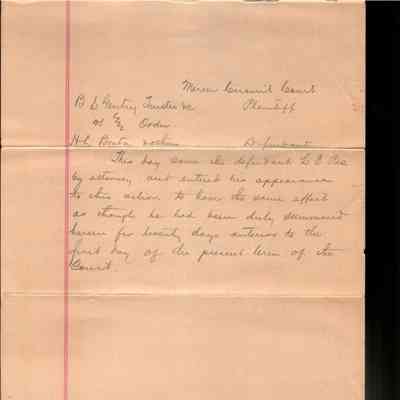 Mercer Circuit Court
B L Gentry Trustee &c Plaintiff
vs Order
H. C. Bonta Defendant
This day came the defendant
by attorney and entered his appearance
to this action to have the same effect
as though he had been duly summoned
herein for twenty days anterior to the
first day of the present term of the
Court.